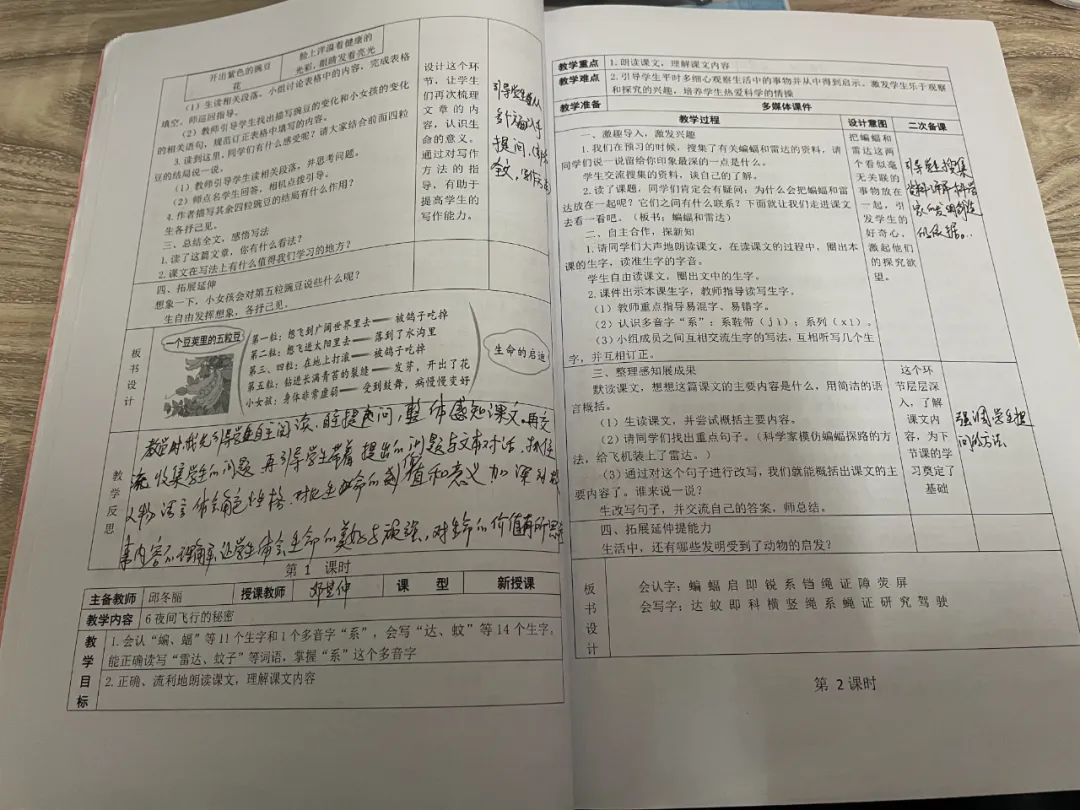 开出紫色的豌豆花
脸上洋溢着健康的光彩,眼睛发着亮光
(1)生读相关段落。小组讨论表格中的内容,完成表格
填空。师巡回指导。
(2)教师引导学生找出描写豌豆的变化和小女孩的变化
的相关语句,规范订正表格中填写的内容。
3.读到这里,同学们有什么感受呢?请大家结合前面四粒
豆的结局说一说。
(1)教师引导学生读相关段落,并思考问题。
(2)师点名学生回答,相机点拨引导。
4.作者描写其余四粒豌豆的结局有什么作用?
生各抒己见。
三、总结全文,感悟写法
1.读了这篇文章,你有什么看法?
2.课文在写法上有什么值得我们学习的地方?
四、拓展延伸
想象一下,小女孩会对第五粒豌豆说些什么呢?
生自由发挥想象,各抒己见。
设计这个环
节,让学生
们再次梳理
文章的内
容,认识生
命的意义。
通过对写作
方法的指
导,有助于
提高学生的
写作能力。
引导学生
多个
提问,
全文,
板书设计
一个豆荚里的五粒豆
第一粒:想飞到广阔世界里去——被鸽子吃掉
第二粒:想飞进太阳里去——落到了水沟里
第三、四粒:在地上打滚——被鸽子吃掉
第五粒:钻进长满青苔的裂缝——发芽,开出了花
小女孩:身体非常虚弱——受到鼓舞,病慢慢变好
生命的启迪
教学反思
教学时,我先引导学生自主阅读、自主提问,整体感知课文,再交
流收集学生的问题,再引导学生带着提出的问题与文本对话,抓住
人物语言体会角色性格,对比生命的价值和意义加深对故
事内容的理解,让学生体会生命的美好与顽强,对生命的价值有所思
第 1 课时
主备教师 邱冬丽 授课教师 课 型 新授课
教学内容 6 夜间飞行的秘密
教学目标
1.会认“蝙、蝠”等 11 个生字和 1 个多音字“系”,会写“达、蚊”等 14 个生字,
能正确读写“雷达、蚊子”等词语,掌握“系”这个多音字
2.正确、流利地朗读课文,理解课文内容
教学重点 1.朗读课文,理解课文内容
教学难点 2.引导学生平时多细心观察生活中的事物并从中得到启示。激发学生乐于观察
和探究的兴趣,培养学生热爱科学的情操
教学准备 多媒体课件
教学过程 设计意图 二次备课
一、激趣导入,激发兴趣
1.我们在预习的时候,搜集了有关蝙蝠和雷达的资料,请
同学们说一说留给你印象最深的一点是什么。
学生交流搜集的资料,谈自己的了解。
2.读了课题,同学们肯定会有疑问:为什么会把蝙蝠和雷
达放在一起呢?它们之间有什么联系?下面就让我们走进课文
去看一看吧。(板书:蝙蝠和雷达)
二、自主合作,探新知
1.请同学们大声地朗读课文,在读课文的过程中,圈出本
课的生字,读准生字的字音。
学生自由读课文,圈出文中的生字。
2.课件出示本课生字,教师指导读写生字。
(1)教师重点指导易混字、易错字。
(2)认识多音字“系”:系鞋带(jì);系列(xì)。
(3)小组成员之间互相交流生字的写法,互相听写几个生
字,并互相订正。
把蝙蝠和
雷达这两
个看似毫
无关联的
事物放在
一起,引
发学生的
好奇心,
激起他们
的探究欲
望。
引导学生搜集
资料,了解科学
家的发明创造
的依据。
三、整理感知展成果
默读课文,想想这篇课文的主要内容是什么,用简洁的语
言概括。
(1)生读课文,并尝试概括主要内容。
(2)请同学们找出重点句子。(科学家模仿蝙蝠探路的方
法,给飞机装上了雷达。)
(3)通过对这个句子进行改写,我们就能概括出课文的主
要内容了。谁来说一说?
生改写句子,并交流自己的答案,师总结。
这个环
节层层深
入,了解
课文内
容,为下
节课的学
习奠定了
基础
强调学生提
问的方法
四、拓展延伸提能力
生活中,还有哪些发明受到了动物的启发?
板书设计
会认字:蝙 蝠 启 即 锐 系 铛 绳 证 障 荧 屏
会写字:达 蚊 即 科 横 竖 绳 系 蝇 证 研 究 驾 驶
第 2 课时